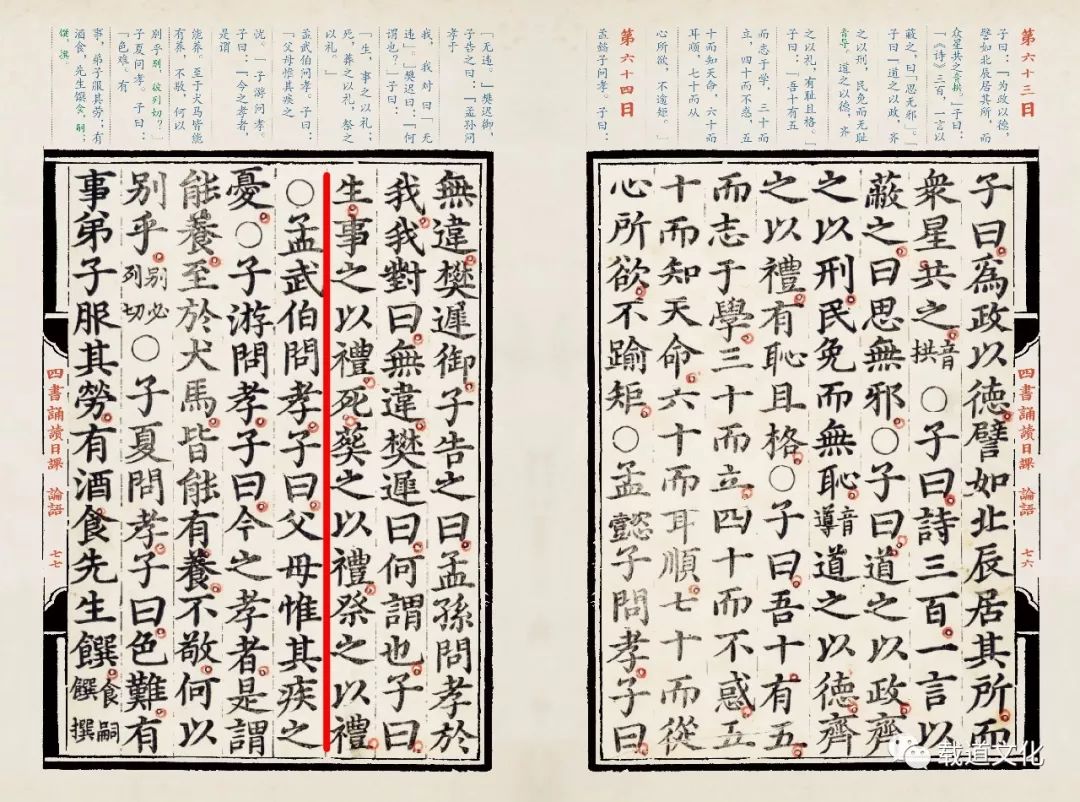 第六十三日
子曰:「为政以德,
譬如北辰居其所,而
众星共之音拱。」子曰:
「《诗》三百,一言以
蔽之,曰『思无邪』。」
子曰「道之以政,齐
之以刑,民免而无耻
音导。道之以德,齐
之以礼,有耻且格。」
子曰:「吾十有五
而志于学,三十而
立,四十而不惑,五
十而知天命,六十而
耳顺,七十而从
心所欲,不逾矩。」
第六十四日
孟懿子问孝。子曰:
子曰為政以德譬如北辰居其所而
衆星共之音拱○子曰詩三百一言以
蔽之曰思無邪○子曰道之以政齊
之以刑民免而無恥音導道之以德齊
之以禮有恥且格○子曰吾十有五
而志于學三十而立四十而不惑五
十而知天命六十而耳順七十而從
心所欲不踰矩○孟懿子問孝子曰
四書誦讀日課 論語 七六
「无违。」樊迟御,
子告之曰:「孟孙问
孝于
我,我对曰『无
违』。」樊迟曰:「何
谓也?」子曰:
「生,事之以礼;
死,葬之以礼,祭之
以礼。」
孟武伯问孝。子曰:
「父母惟其疾之
忧。」子游问孝。
子曰:「今之孝者,
是谓
能养。至于犬马皆能
有养,不敬,何以
别乎别,彼列切?」
子夏问孝。子曰:
「色难。有
事,弟子服其劳;有
酒食,先生馔食,嗣;
馔,撰
無違樊遲御子告之曰孟孫問孝於
我我對曰無違樊遲曰何謂也子曰
生事之以禮死葬之以禮祭之以禮
○孟武伯問孝子曰父母惟其疾之
憂○子游問孝子曰今之孝者是謂
能養至於犬馬皆能有養不敬何以
别乎别必列切○子夏問孝子曰色難有
事弟子服其勞有酒食先生饌食嗣饌撰
四書誦讀日課 論語 七七
载道文化